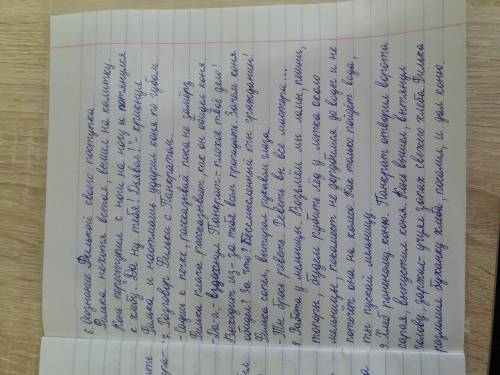 6. Осознание Филькой своего поступка.
Филька нехотя встал, вышел на калитку.
Конь переступил с ноги на ногу и потянулся
к хлебу. "Да ну тебя! Дьявол!" - крикнул
Филька и наотмашь ударил коня по губам.
7. Разговор Фильки с Панкратом.
- Садись к печке, рассказывай пока не замёрз
Филька плача рассказывал как он обидел коня
- Да-а, вздохнул Панкрат - плохое твоё дело!
Выходит из-за тебя всем пропадать. Зачем коня
обидел? За что? Бессмысленный ты гражданин!
Филька сопел, вытирал рукавом глаза.
- Ты брось реветь. Реветь вы все мастера...
8. Работа у мельницы. Возьмём мы ломы, пешни,
топоры, будем рубить лёд у лотка около
мельницы, покамест не дорубимся до воды и не
потечёт она на колесо. Как только пойдёт вода,
ты пускай мельницу.
9. Хлеб раненому коню. Панкрат отворил ворота
сарая, выпустил коня. Конь вышел, вытянул
голову, заржал - учуял запах свежего хлеба. Филька
разломил буханку хлеба, посолил, и дал коню.